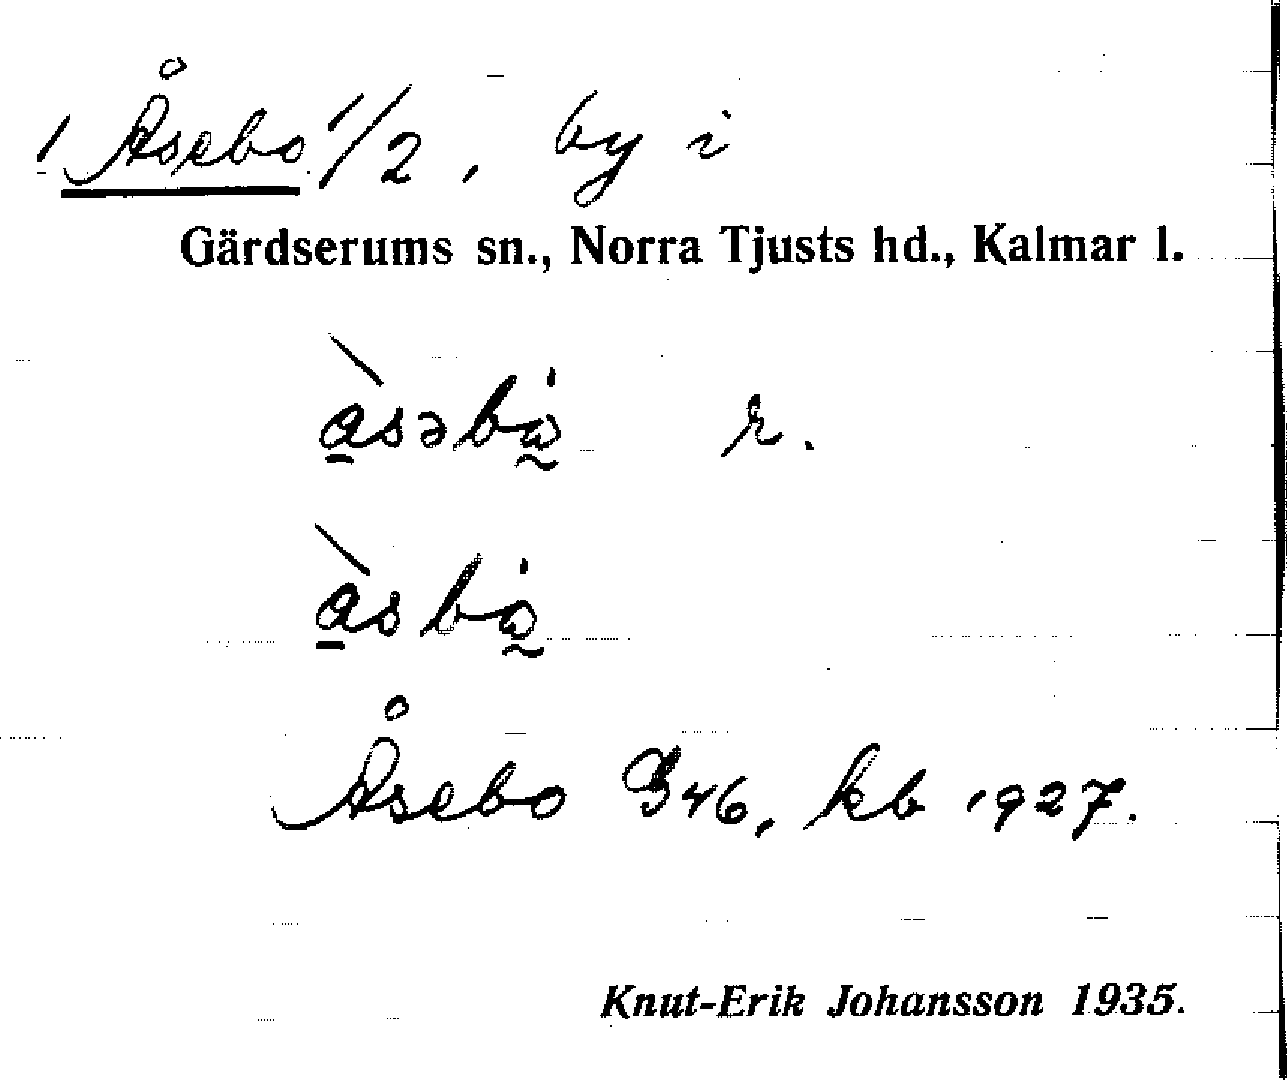 1 Åsebo 1/2, by i
Gärdserums sn., Norra Tjusts hd., Kalmar l.
à̲səbå̰ r.
à̲sbå̰
Åsebo G46, kb 1927.
Knut-Erik Johansson 1935.